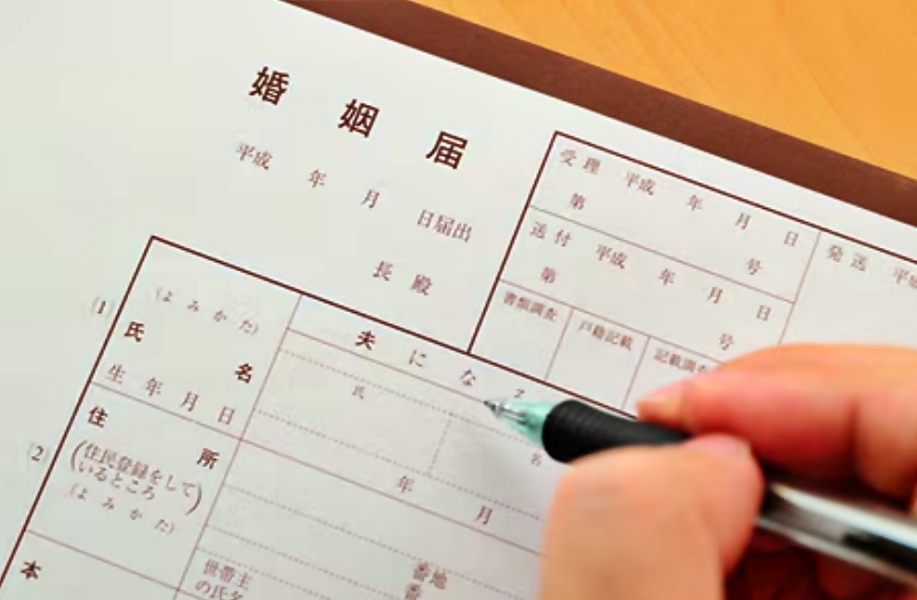 婚姻届
平成 年 月 日届出
長 殿
受理 平成 年 月 日
第 号
送付 平成 年 月 日
第 号
発送 平成
書類調査 戸籍記載 記載調査
(1)
(よみかた)
氏名
生年月日
夫になる
氏 名
年 月
(2)
住所
(住民登録をして
いるところ)
(よみかた)
番地
番
世帯主
の氏名
本